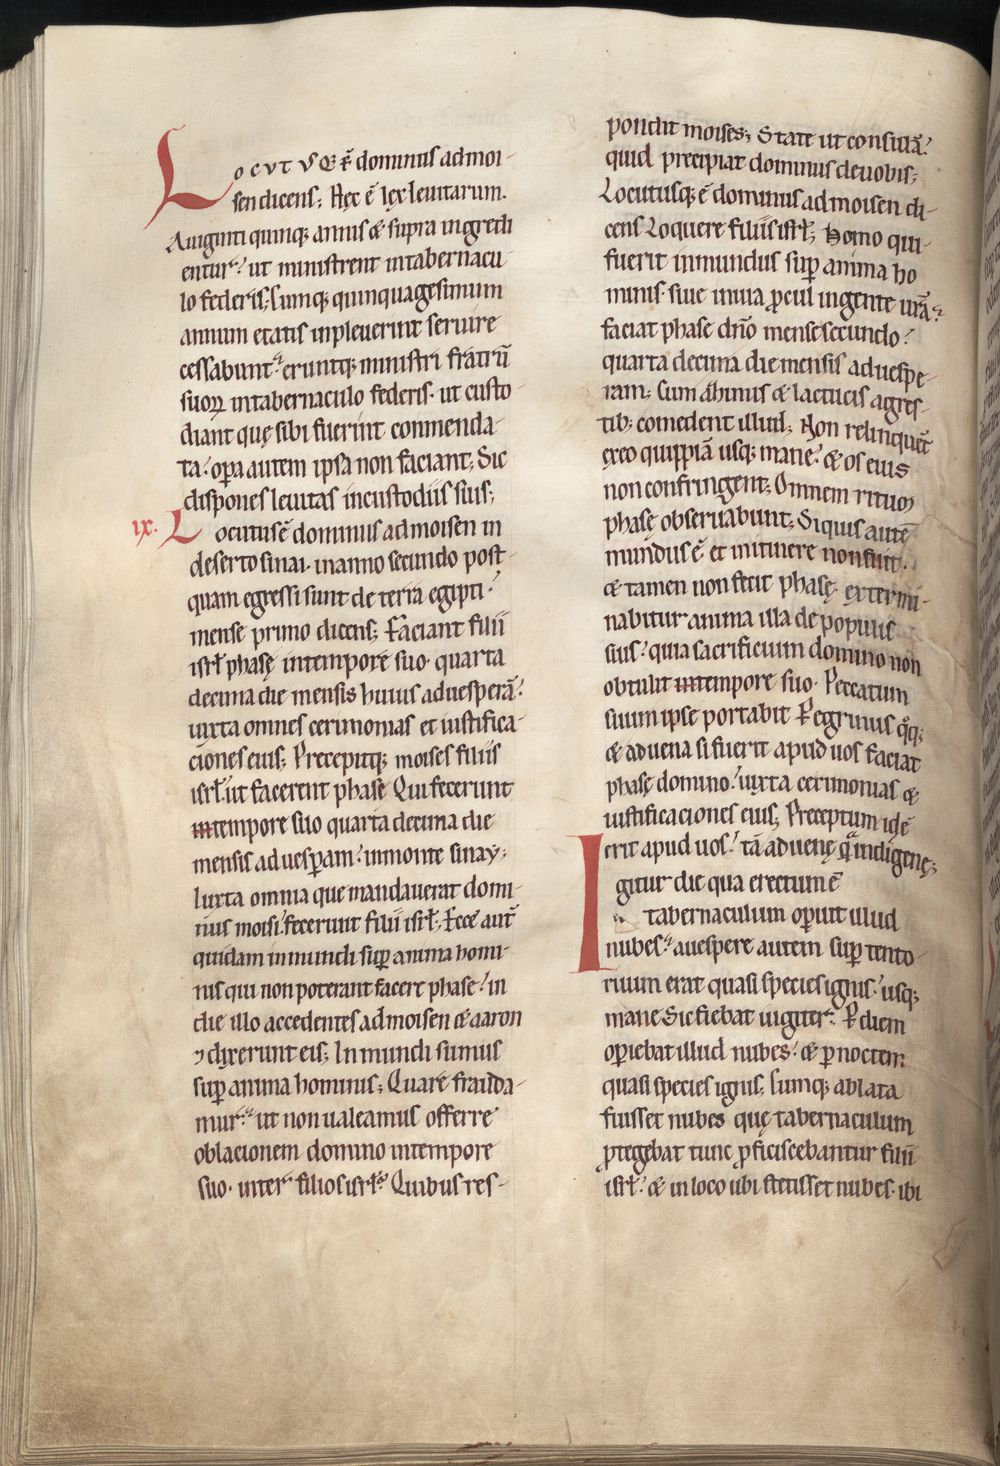 Locutusq; ē dominus ad moi-
sen dicens; Hęc ē lex leuitarum.
A uiginti quinq; annis & supra ingredi
entur? ut ministrent in tabernacu
lo federis; Cumq; quinquagesimum
annum etatis inpleuerint seruire
cessabunt? eruntq; ministri fratrū
suoꝝ in tabernaculo federis. ut custo
diant quę sibi fuerint conmenda-
ta? opera autem ipsa non faciant; Sic
dispones leuitas in custodiis suis;
ix. Locutus ē dominus ad moisen in
deserto sinai. in anno secundo post
quam egressi sunt de terra egipti?
mense primo dicens; Faciant filii
isrł phasę in tempore suo. quarta
decima die mensis huius ad uesperā?
iuxta omnes cerimonias et iustifica-
ciones eius; Precepitq; moises filiis
isrł? ut facerent phasę Qui fecerunt
in tempore suo quarta decima die
mensis ad uesꝑam? in monte sinay;
Iuxta omnia que mandauerat domi-
nus moisi? fecerunt filii isrł; Ecce aut̄
quidam inmundi suꝑ anima homi-
nis qui non poterant facere phase? in
die illo accedentes ad moisen & aaron
⁊ dixerunt eis; Inmundi sumus
suꝑ anima hominis; Quare frauda-
mur? ut non ualeamus offerre
oblacionem domino in tempore
suo. inter filios isrł? Quibus res-
pondit moises; State ut consulā?
quid precipiat dominus de uobis;
Locutusq; ē dominus ad moisen di-
cens Loquere filiis isrł; Homo qui
fuerit inmundus suꝑ anima ho
minis. siue in uia ꝓcul in gente urā?
faciat phase dño mense secundo?
quarta decima die mensis ad uespe-
ram; Cum azimis & lactucis agres-
tib; comedent illud; Non relinquēt
ex eo quippiā usq; mane? & os eius
non confringent; Omnem ritum
phasę obseruabunt; Si quis autē
mundus ē et in itinere non fuit.
& tamen non fecit phasę. extermi-
nabitur anima illa de populis
suis? quia sacrificium domino non
obtulit in tempore suo. Peccatum
suum ipse portabit Peregrinus q̊q;
& aduena si fuerit apud uos faciat
phasę domino? iuxta cerimonias &
iustificaciones eius; Preceptum idē
erit apud uos? tā aduenę quā indigenę;
Igitur die qua erectum ē
tabernaculum oꝑuit illud
nubes? a uespere autem suꝑ tento-
rium erat quasi species ignis? usq;
mane Sic fiebat iugiter? Ꝑ diem
oꝑiebat illud nubes? & ꝑ noctem
quasi species ignis; Cumq; ablata
fuisset nubes quę tabernaculum
ꝓtegebat tunc ꝓficiscebantur filii
isrł? & in loco ubi stetisset nubes. ibi